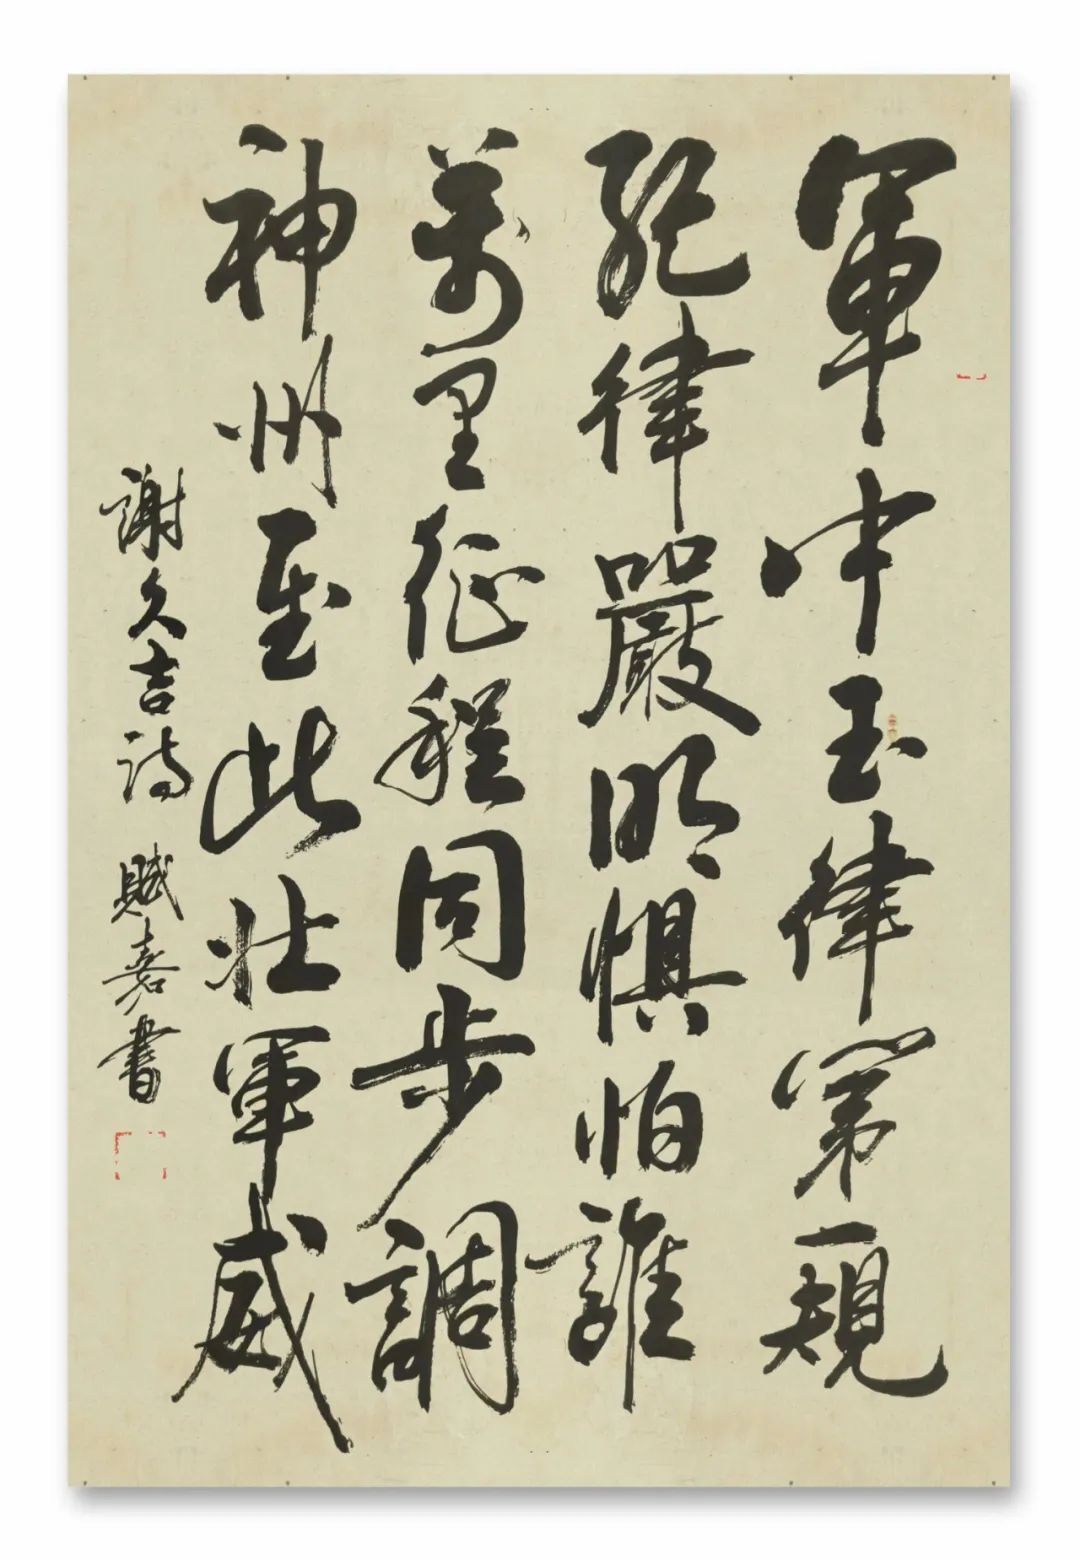 軍中玉律第一規
紀律嚴明懼怕誰
萬里征程同步調
神州至此壯軍威
謝久吉詩 賦嘉書